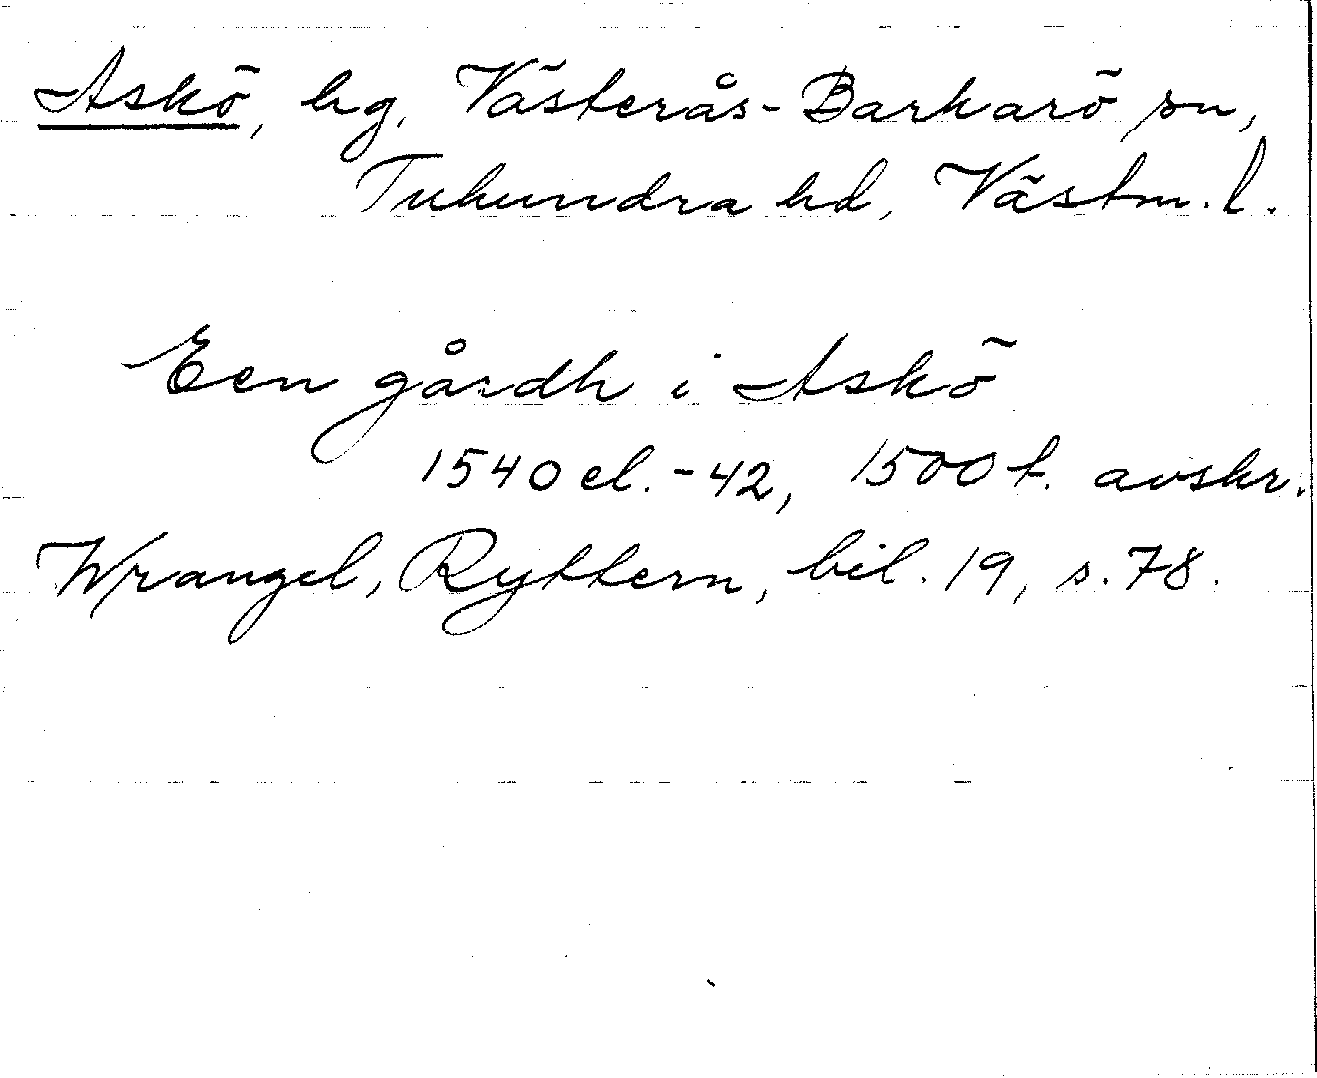 Askö, hg, Västerås-Barkarö sn,
Tuhundra hd, Västm. l.
Een gårdh i Askö
1540 el. -42, 1500 t. avskr.
Wrangel, Ryttern, bil. 19, s. 78.